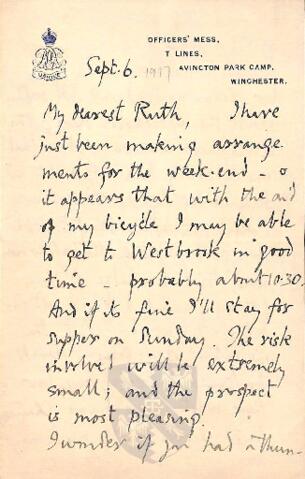 OFFICERS' MESS,
T LINES,
AVINGTON PARK CAMP,
WINCHESTER.
Sept. 6. 1917
My dearest Ruth, I have
just been making arrange-
ments for the week-end - &
it appears that with the aid
of my bicycle I may be able
to get to Westbrook in good
time - probably about 10.30.
And if its fine I'll stay for
supper on Sunday. The risk
involved will be extremely
small; and the prospect
is most pleasing.
I wonder if you had a thun-